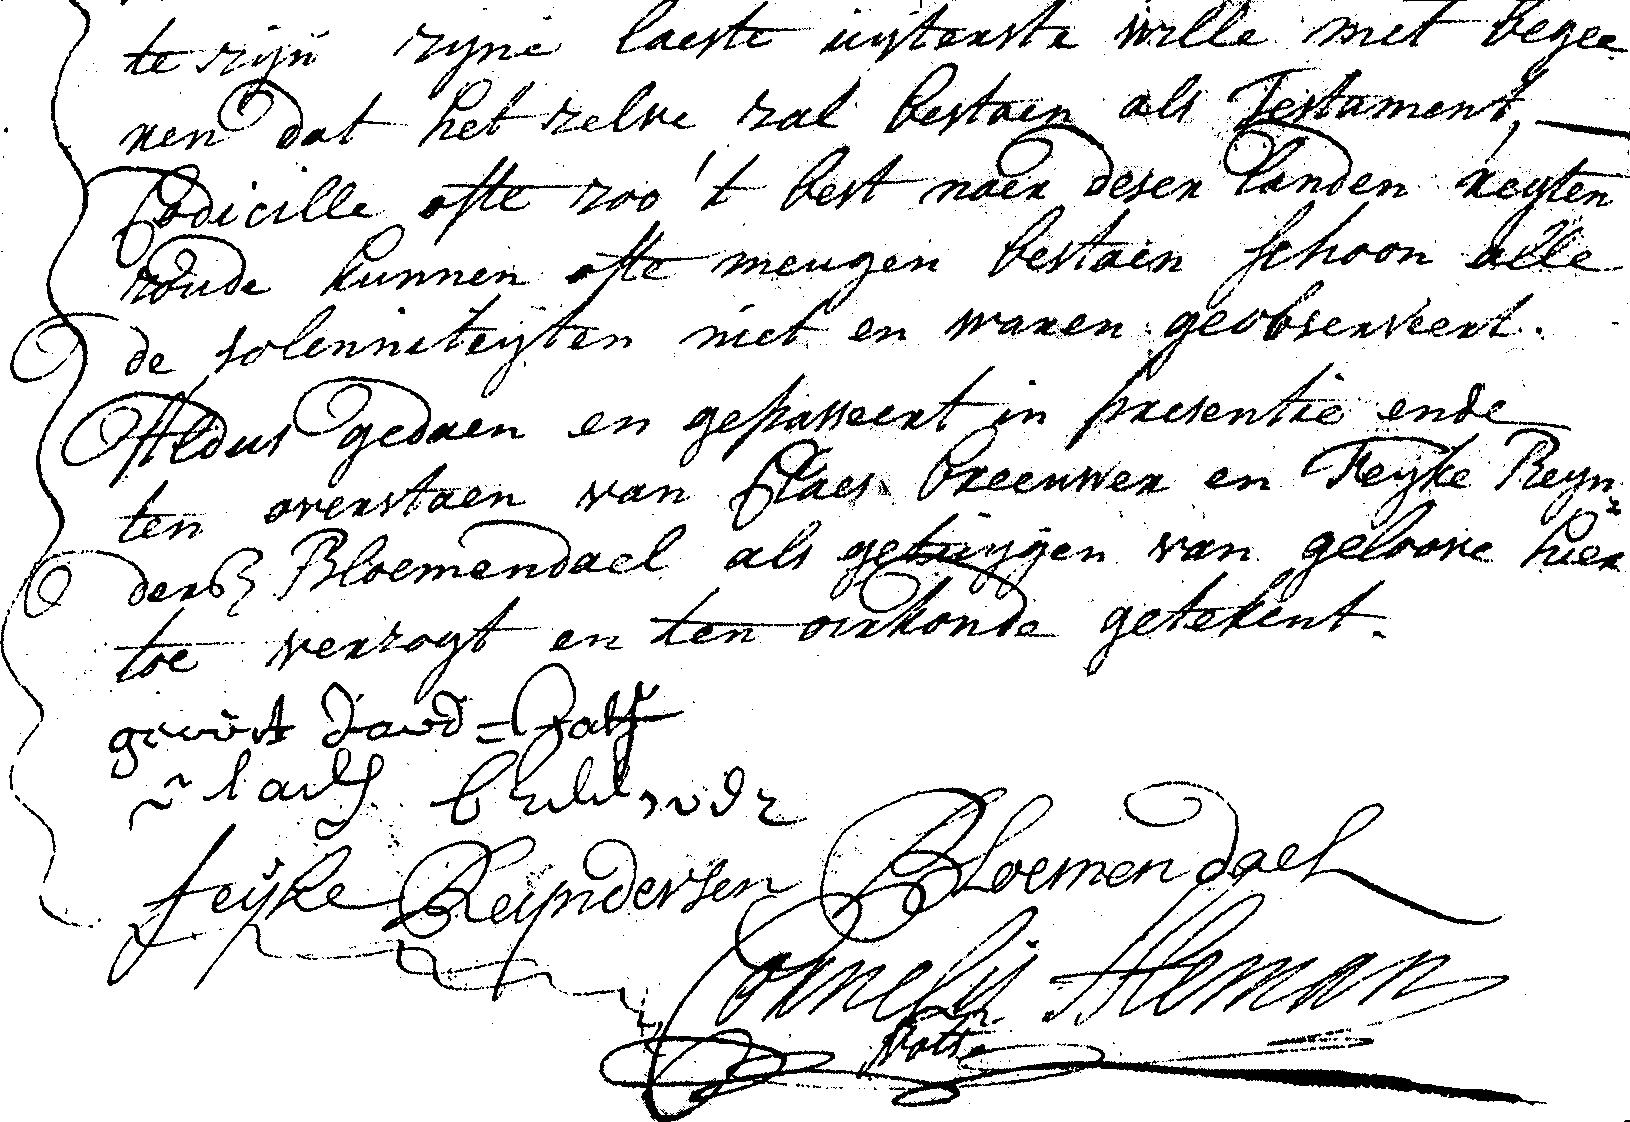 te zijn zijne laeste uijterste wille met begee
ren dat het zelve zal bestaen als Testament,
Codicille ofte zoo 't best naer deser landen reyten
zoude kunnen ofte meugen bestaen schoon alle
de solenniteijten niet en waren geobserveert.
Aldus gedaen en gepasseert in presentie ende
ten overstaen van Claes breeuwer en Feijke Reyn
ders Bloemendael als getuijgen van geloove hier
toe verzogt en ten oirkonde getekent.
gerrit
feijke Reijndersen Bloemendael
Cornelis Heman
Notrs